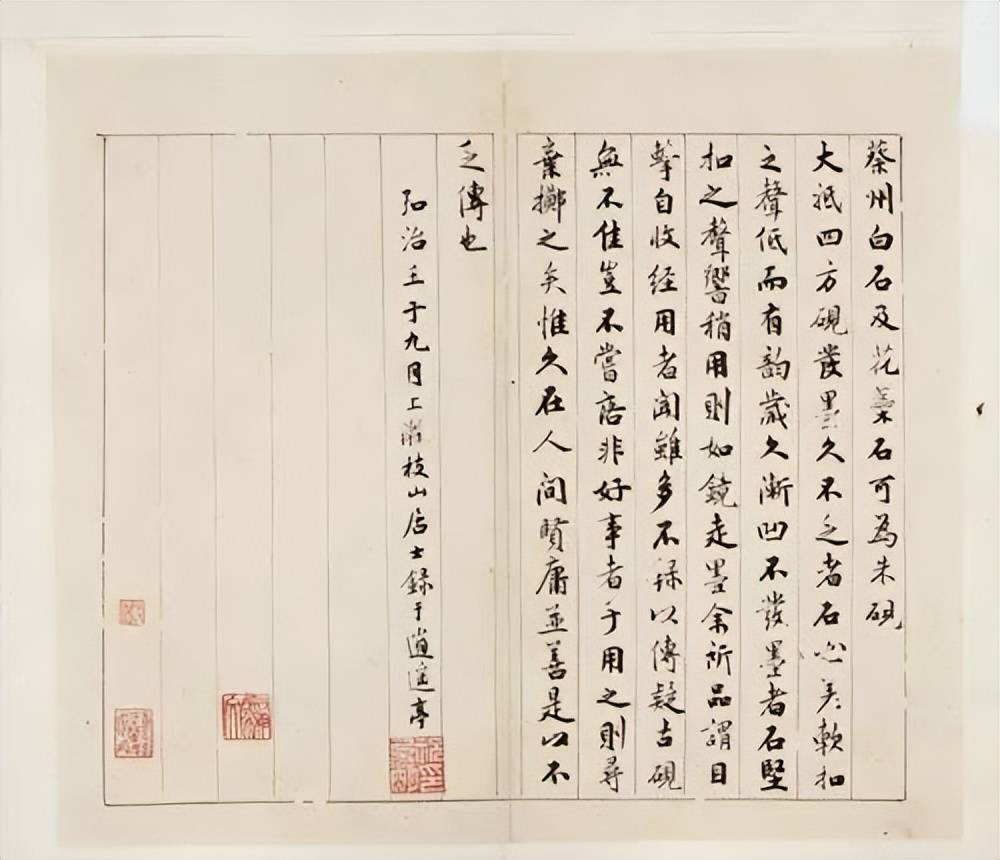 蔡州白石及花蘂石可為朱硯
大抵四方硯發墨久不乏者石必差軟扣
之聲低而有韵歲久漸凹不發墨者石堅
扣之聲響稍用則如鏡走墨余所品謂目
擊自收经用者聞雖多不録以傳疑古硯
無不佳豈不嘗落非好事者手用之則尋
棄擲之矣惟久在人間賢庸並善是以不
乏傳也
弘治壬子九月上澣枝山居士録于逍遙亭